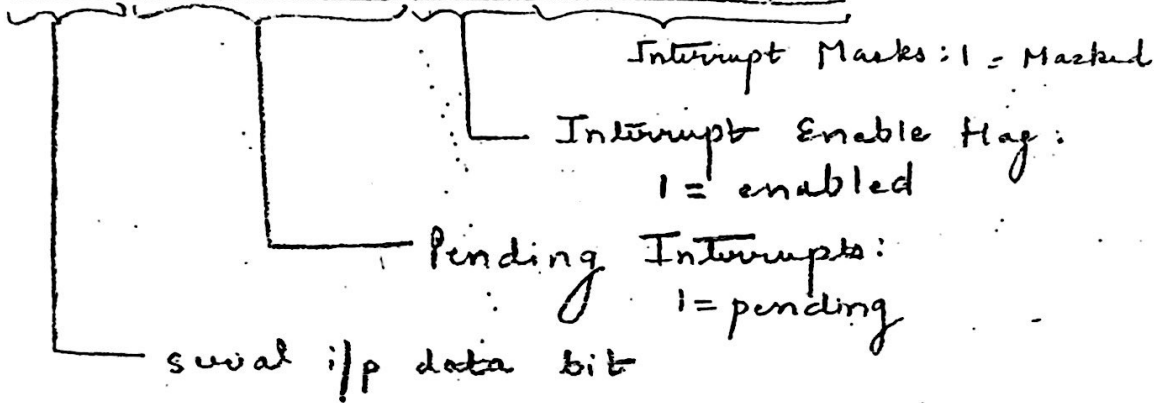 Interrupt Masks : 1 = Masked
Interrupt Enable Flag :
1 = enabled
Pending Interrupts :
1 = pending
serial i/p data bit